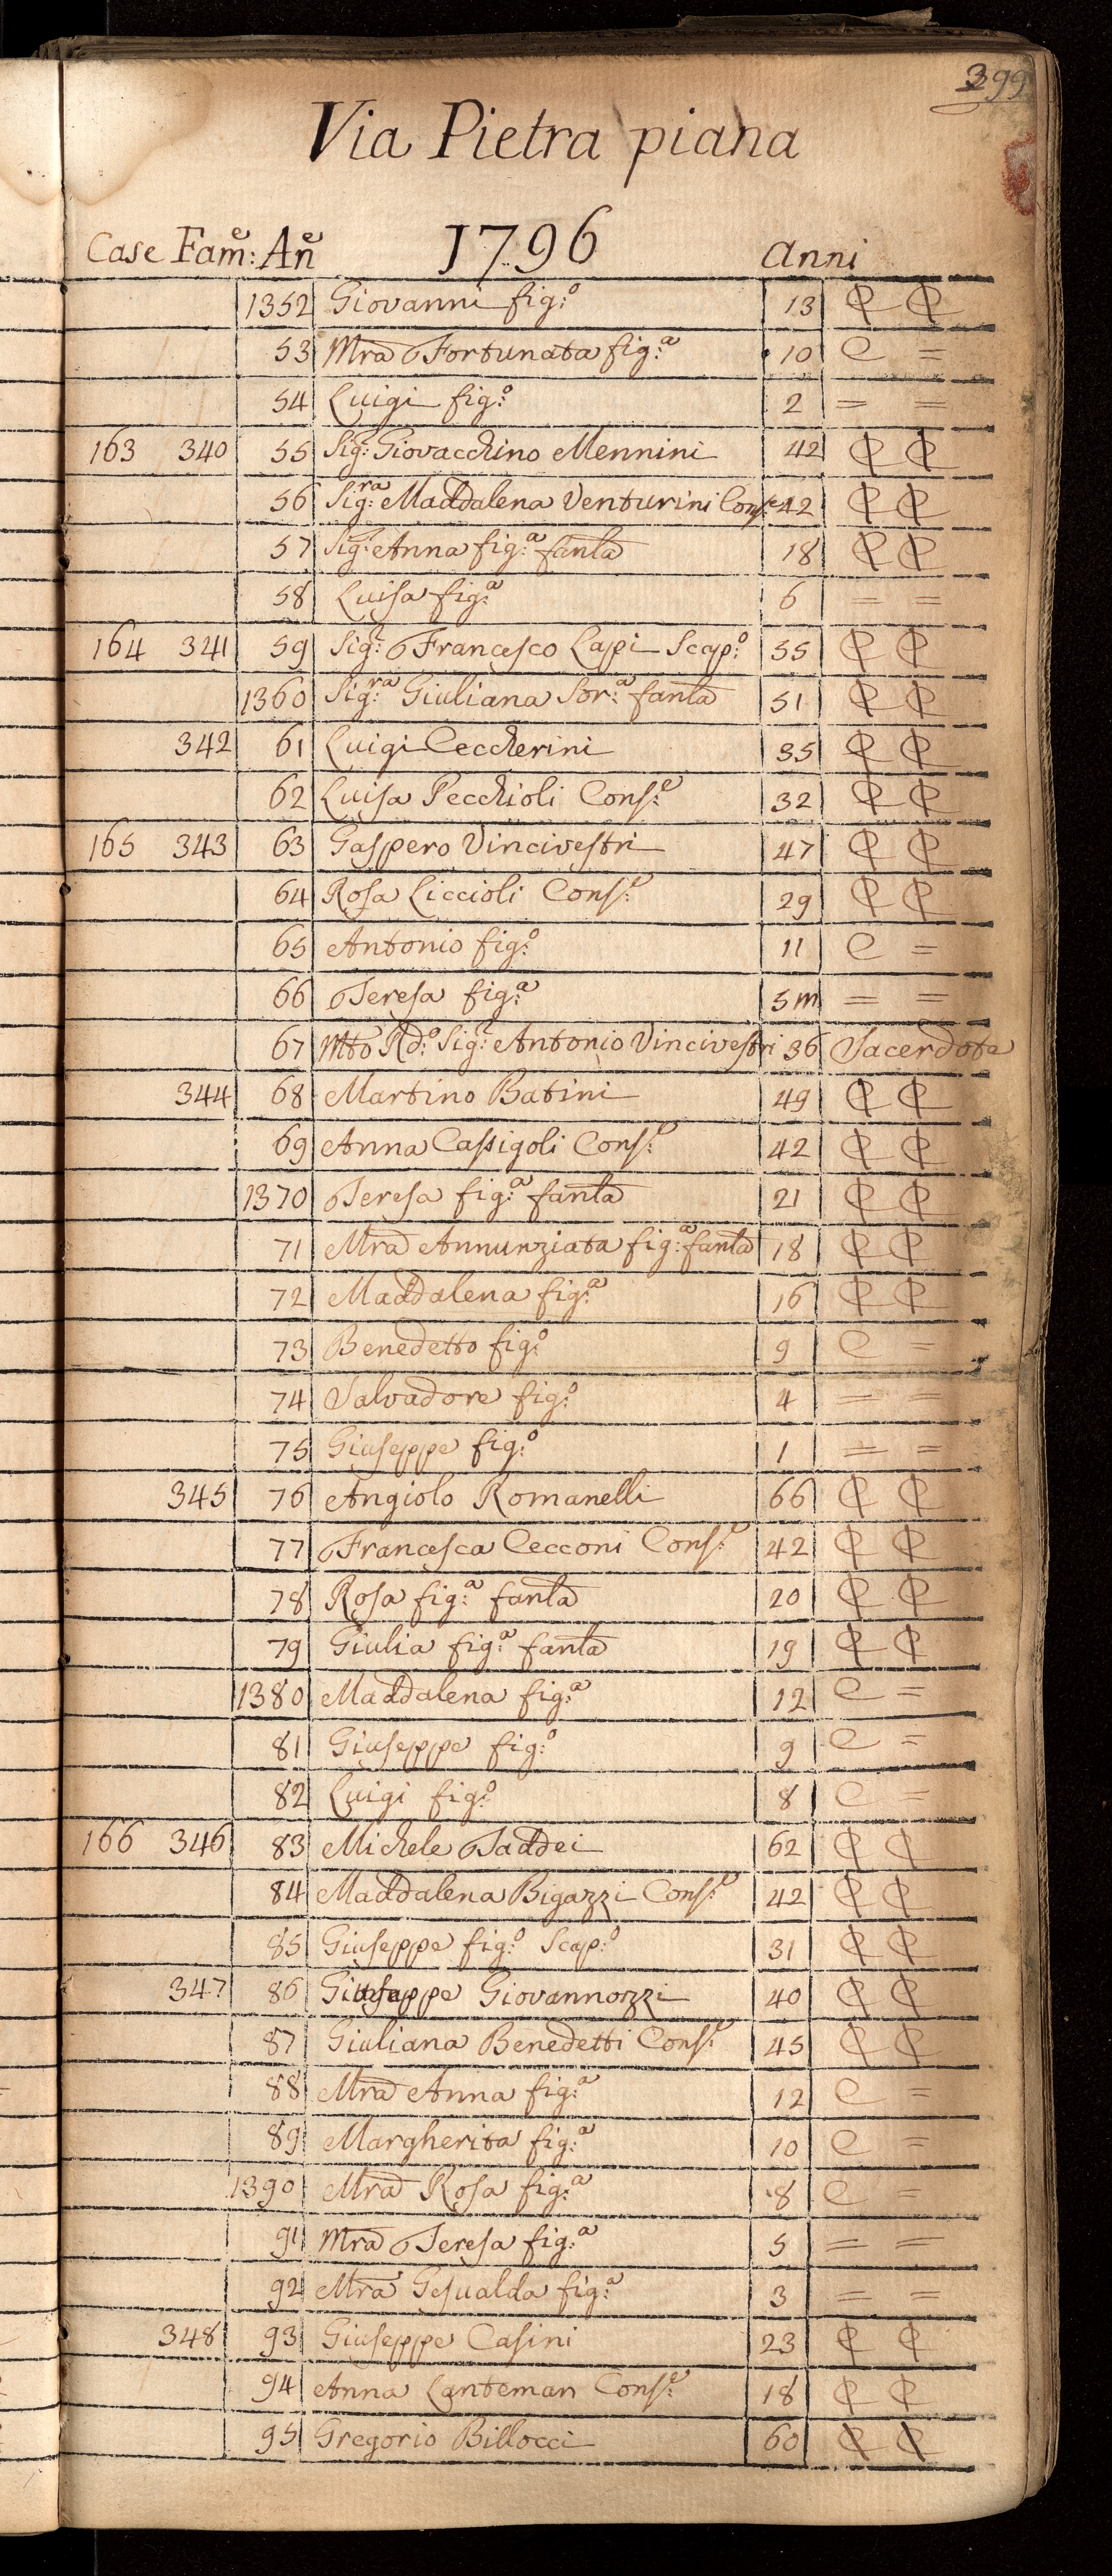 399
Via Pietra piana
Case Fam:e An:e 1796 Anni
1352 Giovanni fig:o 13 ₵ ₵
53 Mra Fortunata fig:a 10 C =
54 Luigi fig:o 2 = =
163 340 55 Sig: Giovacchino Mennini 42 ₵ ₵
56 Sig:ra Maddalena Venturini Cons:e 42 ₵ ₵
57 Sig: Anna fig:a fanla 18 ₵ ₵
58 Luisa fig:a 6 = =
164 341 59 Sig: Francesco Lapi Scap:o 55 ₵ ₵
1360 Sig:ra Giuliana Sor:a fanla 51 ₵ ₵
342 61 Luigi Ceccherini 35 ₵ ₵
62 Luisa Pecchioli Cons:e 32 ₵ ₵
165 343 63 Gaspero Vincivestri 47 ₵ ₵
64 Rosa Liccioli Cons:e 29 ₵ ₵
65 Antonio fig:o 11 C =
66 Teresa fig:a 5 m = =
67 Mto Rd:o Sig:e Antonio Vincivestri 36 Sacerdote
344 68 Martino Batini 49 ₵ ₵
69 Anna Cassigoli Cons:e 42 ₵ ₵
1370 Teresa fig:a fanla 21 ₵ ₵
71 Mra Annunziata fig:a fanla 18 ₵ ₵
72 Maddalena fig:a 16 ₵ ₵
73 Benedetto fig:o 9 C =
74 Salvadore fig:o 4 = =
75 Giuseppe fig:o 1 = =
345 76 Angiolo Romanelli 66 ₵ ₵
77 Francesca Cecconi Cons:e 42 ₵ ₵
78 Rosa fig:a fanla 20 ₵ ₵
79 Giulia fig:a fanla 19 ₵ ₵
1380 Maddalena fig:a 12 C =
81 Giuseppe fig:o 9 C =
82 Luigi fig:o 8 C =
166 346 83 Michele Taddei 62 ₵ ₵
84 Maddalena Bigazzi Cons:e 42 ₵ ₵
85 Giuseppe fig:o Scap:o 31 ₵ ₵
347 86 Giuseppe Giovannozzi 40 ₵ ₵
87 Giuliana Benedetti Cons:e 45 ₵ ₵
88 Mra Anna fig:a 12 C =
89 Margherita fig:a 10 C =
1390 Mra Rosa fig:a 8 C =
91 Mra Teresa fig:a 5 = =
92 Mra Gesualda fig:a 3 = =
348 93 Giuseppe Casini 23 ₵ ₵
94 Anna Lanteman Cons:e 18 ₵ ₵
95 Gregorio Billocci 60 ₵ ₵